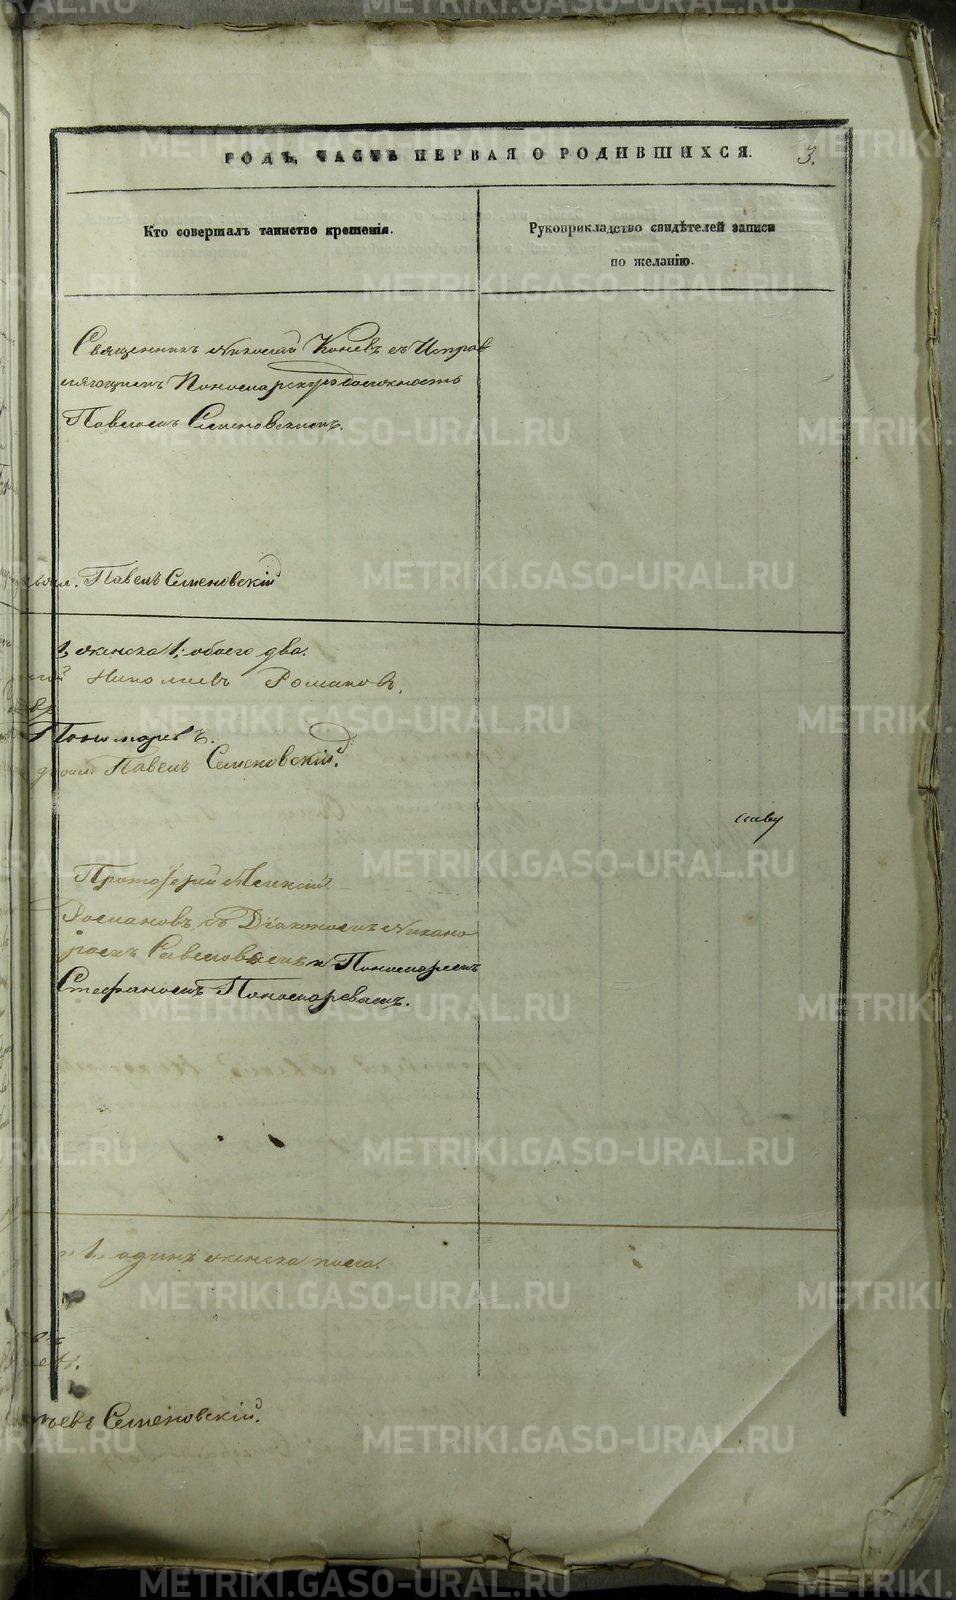 ГОДЪ, ЧАСТЬ ПЕРВАЯ О РОДИВШИХСЯ.
3.
Кто совершалъ таинство крещенія.
Рукоприкладство свидѣтелей записи
по желанію.
Священникъ Николай Коневъ съ Исправ
ляющимъ Пономарскую должность
Павломъ Семеновскимъ.
Павелъ Семеновскій
1, женска 1, обоего два.
Николаевъ Романовъ.
Пономаревъ.
Павелъ Семеновскій.
Протоіерей Алексій
Романовъ, съ Діакономъ Никано
ромъ Савеловымъ и Пономаремъ
Стефаномъ Пономаревымъ.
1, одинъ женска пола.
Семеновскій.
METRIKI.GASO-URAL.RU